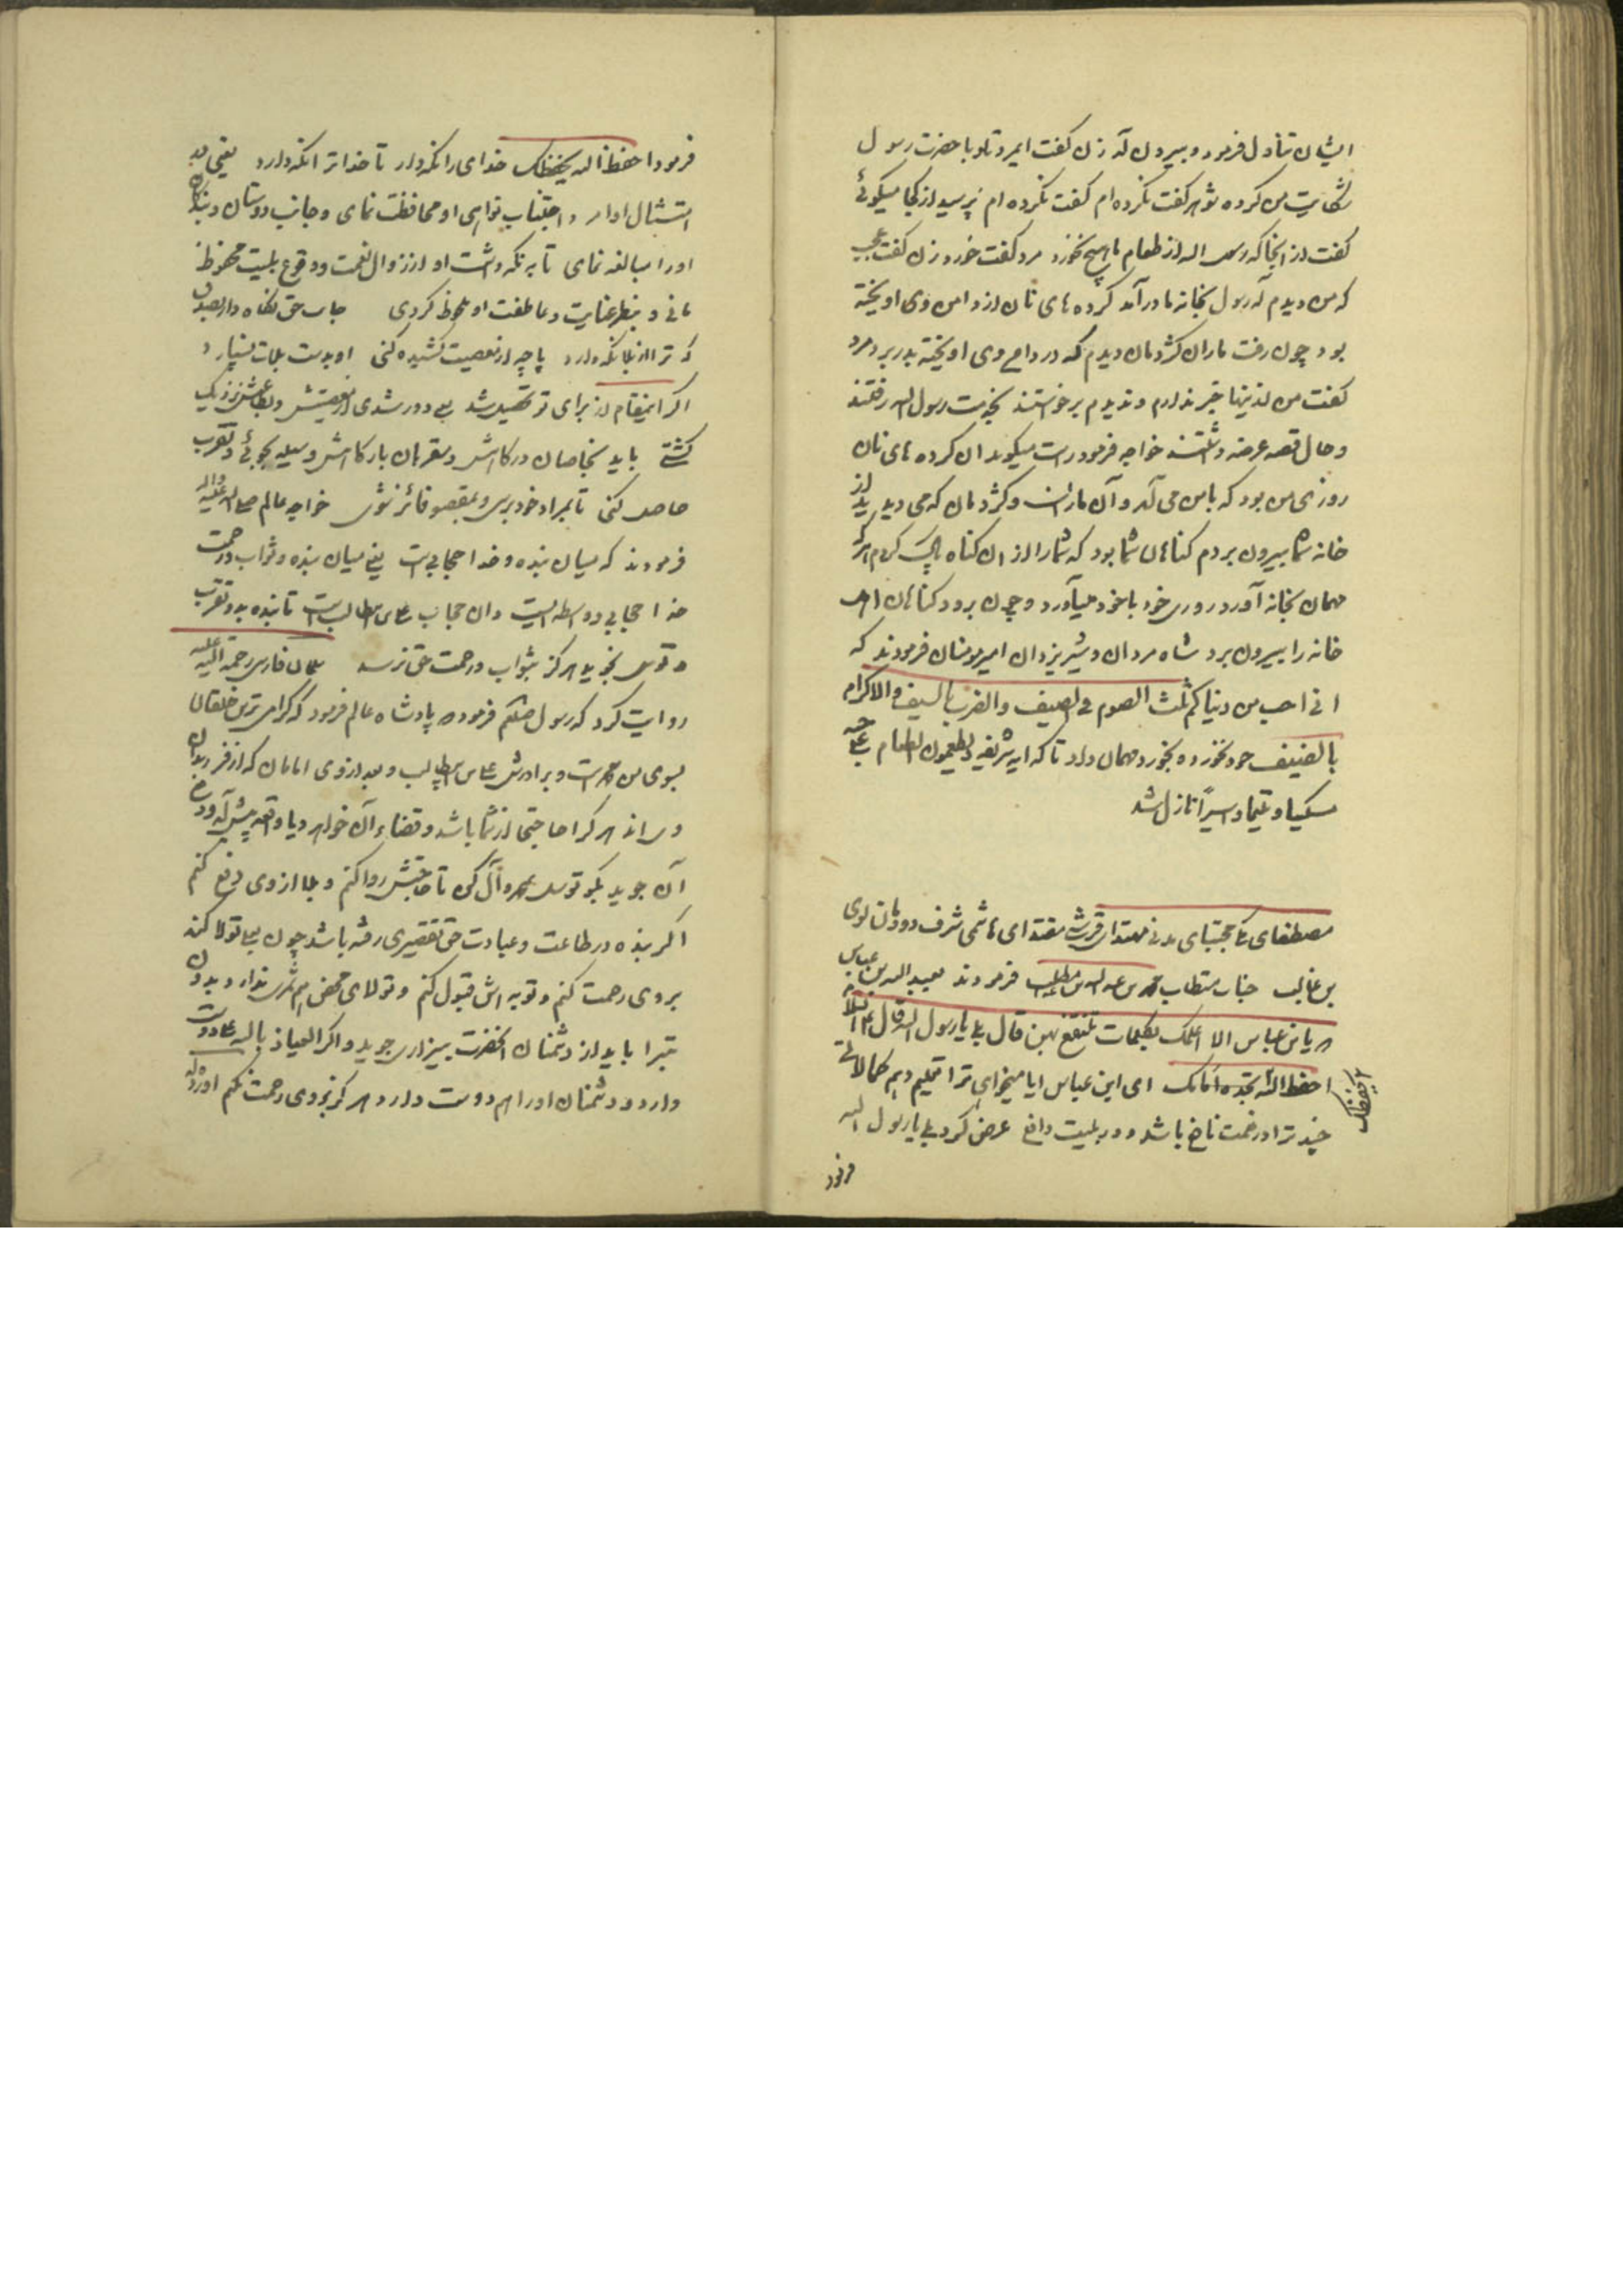 ایشان تناول فرمود و بیرون آمد زن گفت ایمرد تو با حضرت رسول
شکایت من کرده شوهر گفت نکرده ام گفت نکرده ام پرسید از کجا میگوئی
گفت از انجا که رسول اله از طعام ما هیچ نخورد مرد گفت خورد زن گفت عجب
که من دیدم که رسول بخانه ما درآمد کرده های نان از دامن وی اویخته
بود چون رفت ماران کژدمان دیدم که در دامن وی اویخته بدر برد مرد
گفت من ازینها خبر ندارم و ندیدم برخواستند بخدمت رسول اله رفتند
و حال قصه عرضه داشتند خواجه فرمود راست میگوید ان کرده های نان
روزی من بود که با من می آمد و آن ماران و کژدمان که می دیدید از
خانه شما بیرون بردم کناهان شما بود که شما را از ان کناه پاک کردم هر که
مهمان بخانه آورد روزی خود با خود میآورد و چون برود کناهان اهل
خانه را بیرون برد شاه مردان و شیر یزدان امیرمومنان فرمودند که
انی احب من دنیاکم ثلث الصوم فی الصیف والضرب بالسیف والاکرام
بالضیف خود نخورده بخورد مهمان داد تا که ایه شریفه ویطعمون الطعام علی حبه
مسکینا و یتیما و اسیراً نازل شد
مصطفای مکی مجتبای مدنی مهتدای قرشی مقتدای هاشمی شرف دودمان لوی
بن غالب جناب مستطاب محمد بن عبد اله بن عبد المطلب فرمودند بعبد اله بن عباس
که یابن عباس الا اعلمک بکلمات تنتفع بهن قال بلی یا رسول اله قال علیه السلام
احفظ الله تجده امامک ای ابن عباس ایا میخواهی ترا تعلیم دهم کمالاتی
احفظ اله یحفظک
چند ترا در نعمت نافع باشد و در بلیت دافع عرض کرد بلی یا رسول اله
فرمود
فرمود احفظ اله یحفظک خدای را نکه دار تا خدا ترا نکه دارد یعنی در
امتثال اوامر و اجتناب نواهی او محافظت نمای و جانب دوستان و بندکان
او را مبالغه نمای تا به نکه داشت او از زوال نعمت و وقوع بلیت محفوظ
مانی و بنظر عنایت و عاطفت او ملحوظ کردی جانب حق نکاه دار بصدق
که ترا از بلا نکه دارد پا چه از معصیت کشیده کنی او بدست بلات نسپارد
اکر اینمقام از برای تو تحصیل شد یعنی دور شدی از معصیتش و بطاعتش نزدیک
کشتی باید بخاصان درکاهش و مقربان بارکاهش وسیله بجوئی و تقرب
حاصل کنی تا بمراد خود برسی و بمقصود فائز شوی خواجه عالم صلی اله علیه واله
فرمودند که میان بنده و خدا حجابی است یعنی میان بنده و ثواب و رحمت
خدا حجابی و واسطه ایست و ان حجاب علی بن ابیطالب است تا بنده بدو تقرب
و توسل نجوید هرکز بثواب و رحمت حق نرسد سلمان فارسی رحمة اله علیه
روایت کرد که رسول صلعم فرموده پادشاه عالم فرمود که کرامی ترین خلقان
بسوی من محمد است و برادرش علی بن ابیطالب و بعد از وی امامان که از فرزندان
وی اند هر کرا حاجتی از شما باشد و قضاء آن خواهد و یا واقعه پیش آمد و دفع
آن جوید بکو توسل بمحمد و آل کن تا حاجتش روا کنم و بلا از وی دفع کنم
اکر بنده در طاعت و عبادت حق تقصیری رفته باشد چون بعلی تولا کند
بر وی رحمت کنم و توبه اش قبول کنم و تولای محض هم ثمری ندارد و بدون
تبرا باید از دشمنان انحضرت بیزاری جوید و اکر العیاذ باله علی را دوست
دارد و دشمنان او را هم دوست دارد هرکز بر وی رحمت نکنم او را